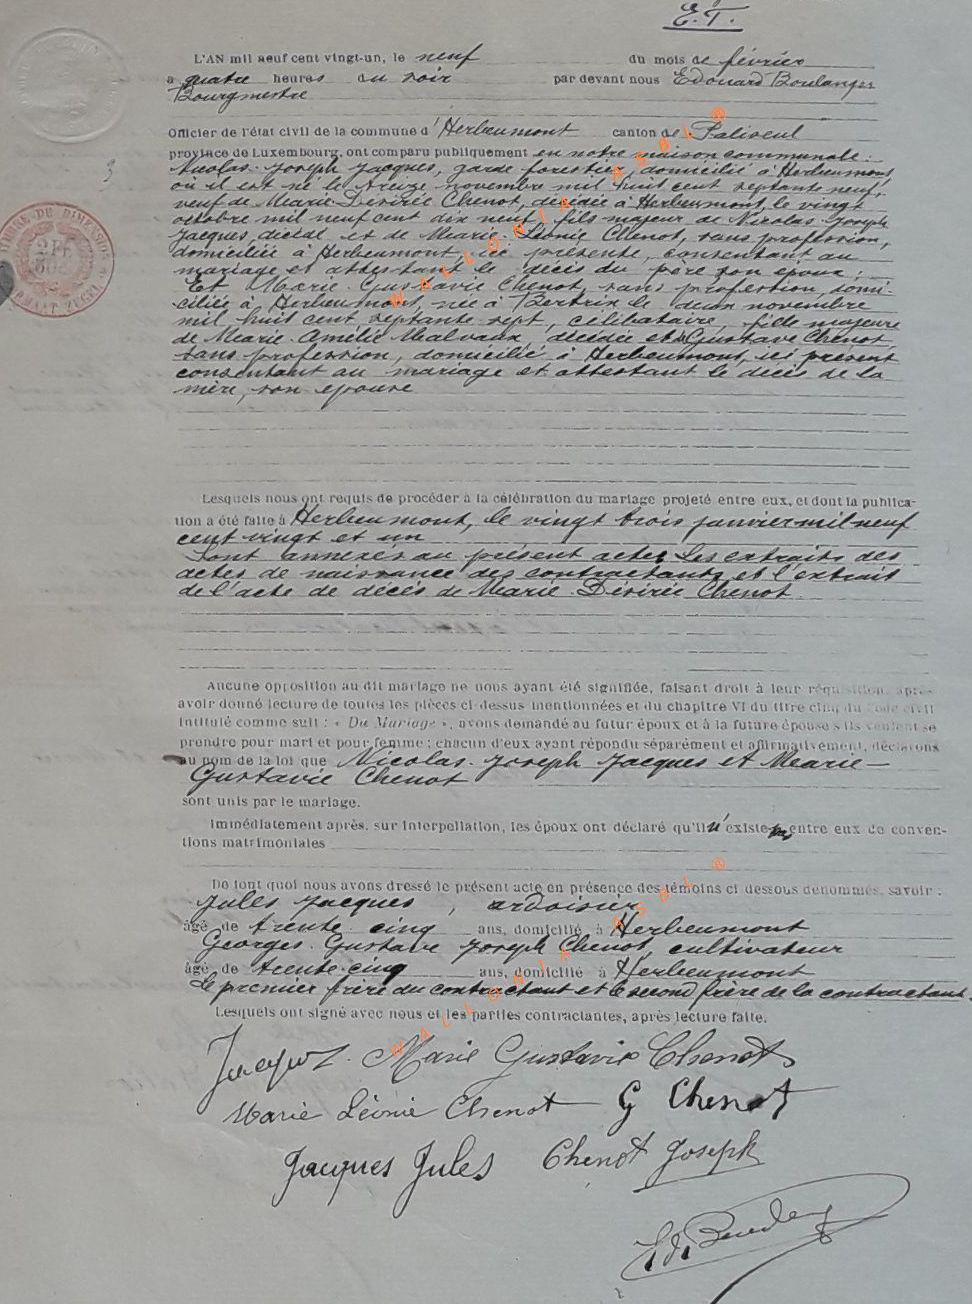 E.T.
L'AN mil neuf cent vingt-un, le neuf du mois de février
a quatre heures du soir par devant nous Edouard Boulanger
Bourgmestre
Officier de l'état civil de la commune d'Herbeumont canton de Paliseul
province de Luxembourg, ont comparu publiquement en notre maison communale :
Nicolas-Joseph Jacques, garde forestier, domicilié à Herbeumont
où il est né le treize novembre mil huit cent septante neuf,
veuf de Marie-Désirée Chenot, décédée à Herbeumont, le vingt
octobre mil neuf cent dix neuf, fils majeur de Nicolas-Joseph
Jacques, décédé et de Marie-Léonie Chenot, sans profession,
domiciliée à Herbeumont, ici présente, consentant au
mariage et attestant le décès du père son époux ;
Et Marie-Gustavie Chenot, sans profession, domi-
ciliée à Herbeumont, née à Bertrix le deux novembre
mil huit cent septante sept, célibataire, fille majeure
de Marie-Amélie Malvaux, décédée et de Gustave Chenot,
sans profession, domicilié à Herbeumont, ici présent
consentant au mariage et attestant le décès de la
mère, son épouse
Lesquels nous ont requis de procéder à la célébration du mariage projeté entre eux, et dont la publica-
tion a été faite à Herbeumont, le vingt trois janvier mil neuf
cent vingt et un
Sont annexés au présent acte, les extraits des
actes de naissance des contractants et l'extrait
de l'acte de décès de Marie-Désirée Chenot.
Aucune opposition au dit mariage ne nous ayant été signifiée, faisant droit à leur réquisition, après
avoir donné lecture de toutes les pièces ci-dessus mentionnées et du chapitre VI du titre cinq du Code civil
intitulé comme suit : « Du Mariage », avons demandé au futur époux et à la future épouse s'ils veulent se
prendre pour mari et pour femme ; chacun d'eux ayant répondu séparément et affirmativement, déclarons
au nom de la loi que Nicolas-Joseph Jacques et Marie-
Gustavie Chenot
sont unis par le mariage.
Immédiatement après, sur interpellation, les époux ont déclaré qu'il n'existe pas entre eux de conven-
tions matrimoniales
De tout quoi nous avons dressé le présent acte en présence des témoins ci dessous dénommés, savoir :
Jules Jacques, ardoisier
âgé de trente cinq ans, domicilié à Herbeumont
Georges-Gustave Joseph Chenot, cultivateur
âgé de trente-cinq ans, domicilié à Herbeumont
le premier frère du contractant et le second frère de la contractante.
Lesquels ont signé avec nous et les parties contractantes, après lecture faite.
Jacques Marie Gustavie Chenot
Marie Léonie Chenot G Chenot
Jacques Jules Chenot Joseph
Ed. Boulanger
3
TIMBRE DE DIMENSION
2 FR
WALLONIA ASBL ®
WALLONIA ASBL ®